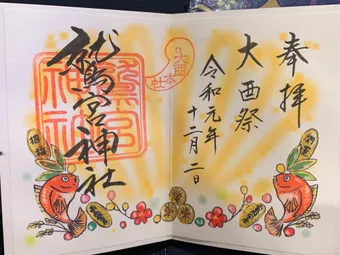 奉拝
大酉祭
令和元年
十二月二日
大酉
本社
鷲宮神社
鷲宮
神社